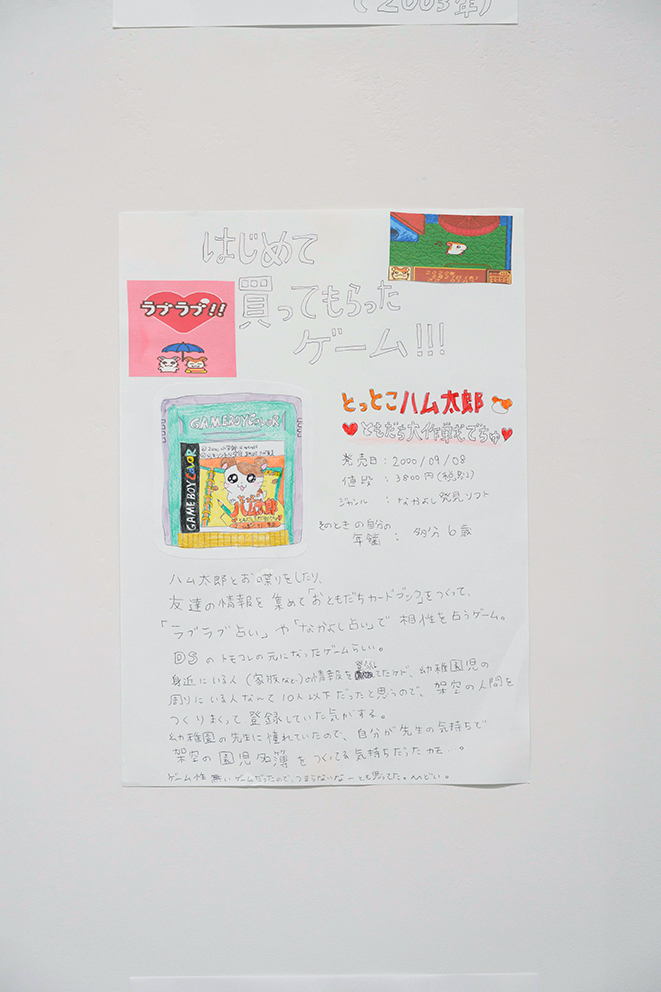 (2003年)
はじめて
買ってもらった
ゲーム!!!
ラブラブ!!
とっとこハム太郎
ともだち大作戦でちゅ
発売日:2000/09/08
値段:3800円(税別)
ジャンル:なかよし発見ソフト
そのときの自分の
年齢:多分6歳
GAMEBOYCOLOR
GAMEBOY COLOR
ハム太郎
ハム太郎とお喋りをしたり、
友達の情報を集めて「おともだちカードブック」をつくって、
「ラブラブ占い」や「なかよし占い」で相性を占うゲーム。
DSのトモコレの元になったゲームらしい。
身近にいる人(家族など)の情報を登録してたケド、幼稚園児の
周りにいる人なんて10人以下だったと思うので、架空の人間を
つくりまくって登録していた気がする。
幼稚園の先生に憧れていたので、自分が先生の気持ちで
架空の園児名簿をつくってる気持ちだったカモ…。
ゲーム性無いゲームだったので、つまらないなーとも思ってた。ひどい。